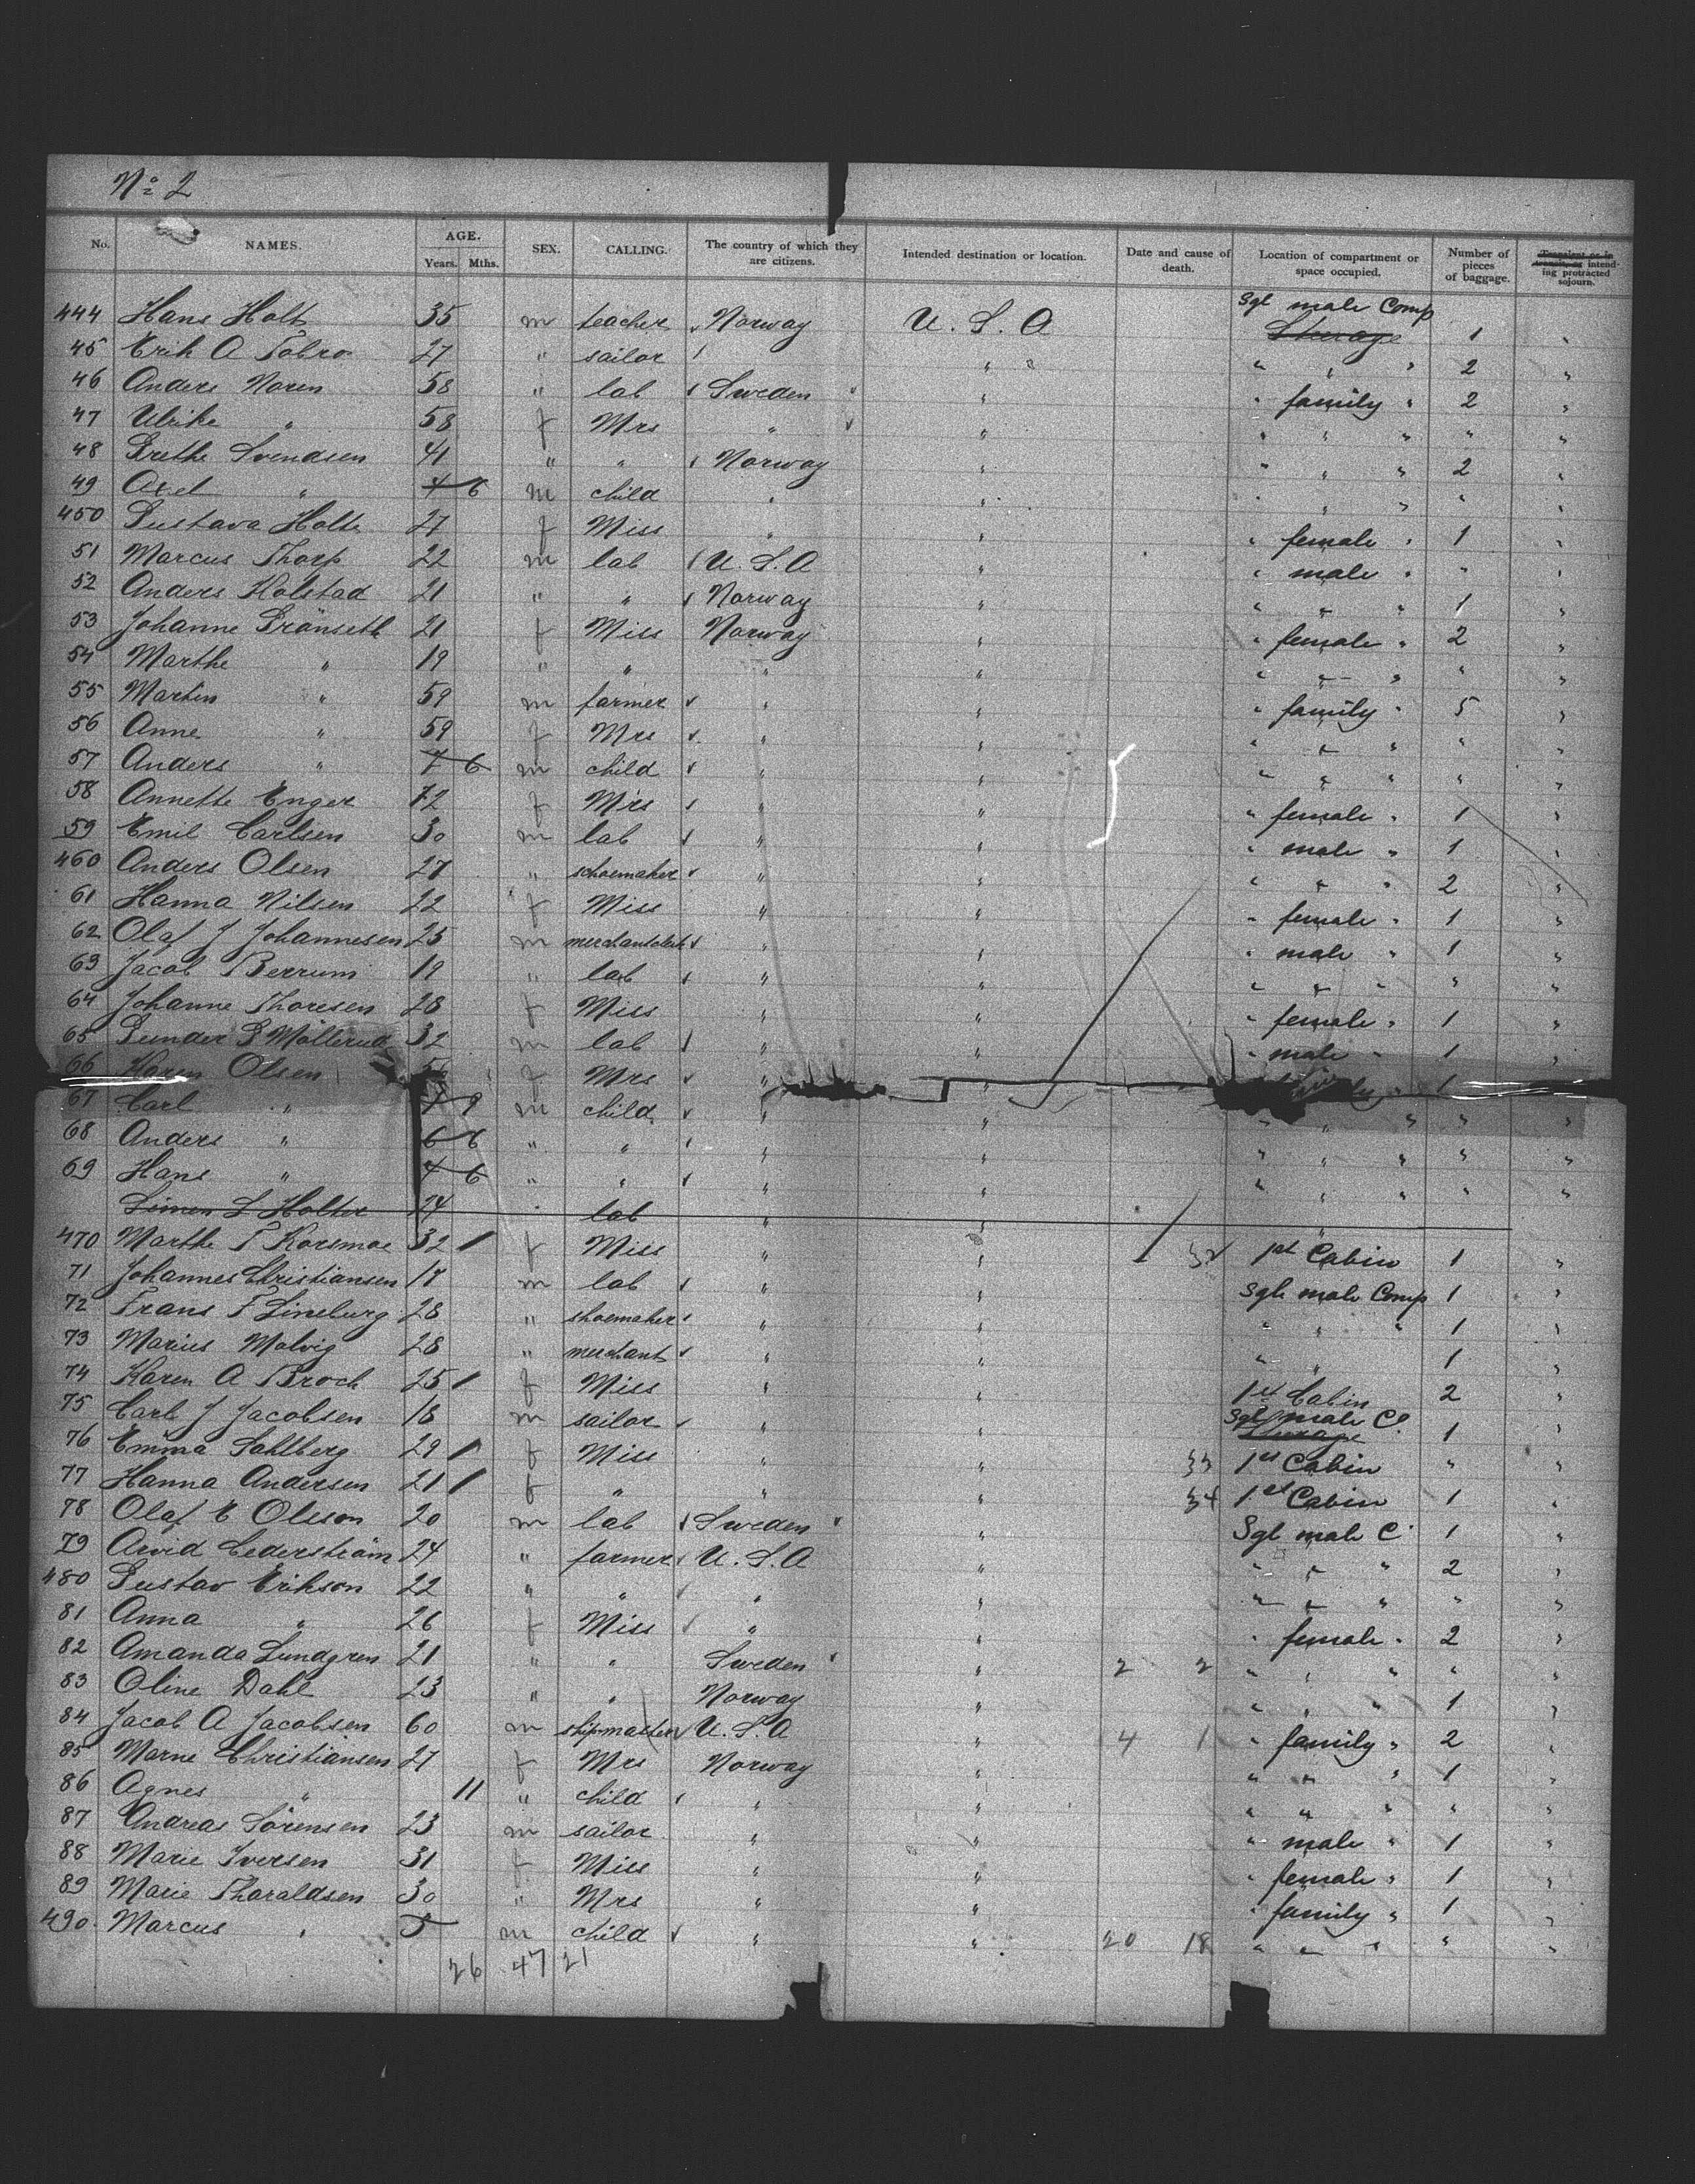 No 2
No. NAMES. AGE. Years. Mths. SEX. CALLING. The country of which they are citizens. Intended destination or location. Date and cause of death. Location of compartment or space occupied. Number of pieces of baggage. Transient or in transit, or intending protracted sojourn.
444 Hans Holt 35 m teacher Norway U. S. A Sgl male Comp Steerage 1 "
45 Erik A 27 " sailor " " " " 2 "
46 Anders Noren 58 " lab Sweden " " family " 2 "
47 Ulrike " 58 f Mrs " " " " " " "
48 Grethe Svendsen 41 " " Norway " " " " 2 "
49 Axel " 4 6 m child " " " " " "
450 Gustava Holte 27 f Miss " " " female " 1 "
51 Marcus Thorp 22 m lab U. S. A " " male " " "
52 Anders Holstad 21 " " Norway " " " " 1 "
53 Johanne Grönseth 21 f Miss Norway " " female " 2 "
54 Marthe " 19 " " " " " " " " "
55 Martin " 59 m farmer " " " family " 5 "
56 Anne " 59 f Mrs " " " " " " "
57 Anders " 7 6 m child " " " " " " "
58 Annette Enger 72 f Mrs " " " female " 1 "
59 Emil Carlsen 30 m lab " " " male " 1 "
460 Anders Olsen 27 " schoemaker " " " " " 2 "
61 Hanna Nilsen 22 f Miss " " " female " 1 "
62 Olaf J Johannesen 25 m merchantclerk " " " male " 1 "
63 Jacob Berrum 19 " lab " " " " " " "
64 Johanne Thoresen 28 f Miss " " " female " 1 "
65 Gunder G Möllerud 32 m lab " " " male " 1 "
66 Karen Olsen f Mrs " " 1
67 Carl " 9 m child " " " " " " "
68 Anders " 6 6 " " " " " " " " "
69 Hans " 4 6 " " " " " " " " "
Simen L Holter 24 " lab " " "
470 Marthe T Korsmoe 32 f Miss " " 32 1st Cabin 1 "
71 Johannes Christiansen 17 m lab " " Sgle male Comp 1 "
72 Frans F Lineburg 28 " shoemaker " " " " " 1 "
73 Marius Malvig 28 " merchant " " " " 1 "
74 Karen A Broch 25 f Miss " " 1st Cabin 2 "
75 Carl J Jacobsen 18 m sailor " " Sgl male C. Steerage 1 "
76 Emma Sahlberg 29 f Miss " " 33 1st Cabin " "
77 Hanna Andersen 21 f " " " 34 1st Cabin 1 "
78 Olaf E Olsson 20 m lab Sweden " Sgl male C 1 "
79 Arvid Cederström 24 " farmer U. S. A " " " " 2 "
480 Gustav Erikson 22 " " " " " " " " "
81 Anna " 26 f Miss " " " female " 2 "
82 Amanda Lundgren 21 " " Sweden " 2 2 " " " " "
83 Oline Dahl 23 " " Norway " " " " 1 "
84 Jacob A Jacobsen 60 m shipmaster U. S. A " 4 1 " family " 2 "
85 Marne Christiansen 27 f Mrs Norway " " " " 1 "
86 Agnes " 11 " child " " " " " " "
87 Andreas Sörensen 23 m sailor " " " male " 1 "
88 Marie Iversen 31 f Miss " " " female " 1 "
89 Marie Tharaldsen 30 " Mrs " " " family " 1 "
490 Marcus " 5 m child " " 20 18 " " " " "
26 47 21